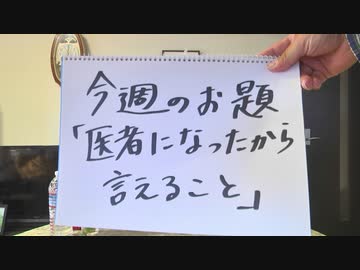 今週のお題
「医者になったから
言えること」